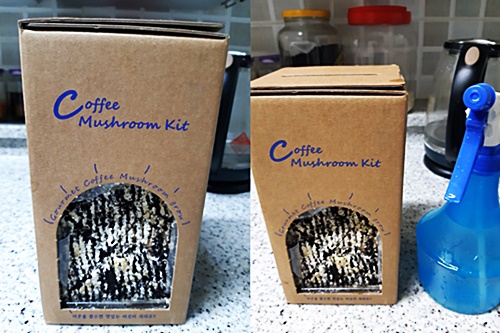 Coffee
Mushroom Kit
Gourmet Coffee Mushroom grow!
Coffee
Mushroom Kit
Gourmet Coffee Mushroom grow!